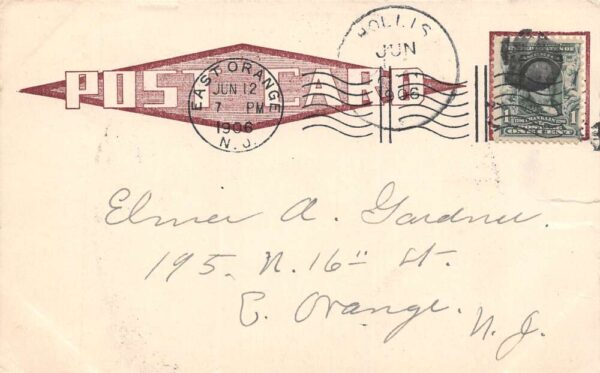 POST CARD
HOLLIS
JUN
1906
EAST ORANGE
JUN 12
7 PM
1906
N. J.
FRANKLIN
1 1
ONE CENT
Elmer A. Gardner.
195. N. 16" St.
E. Orange.
N. J.